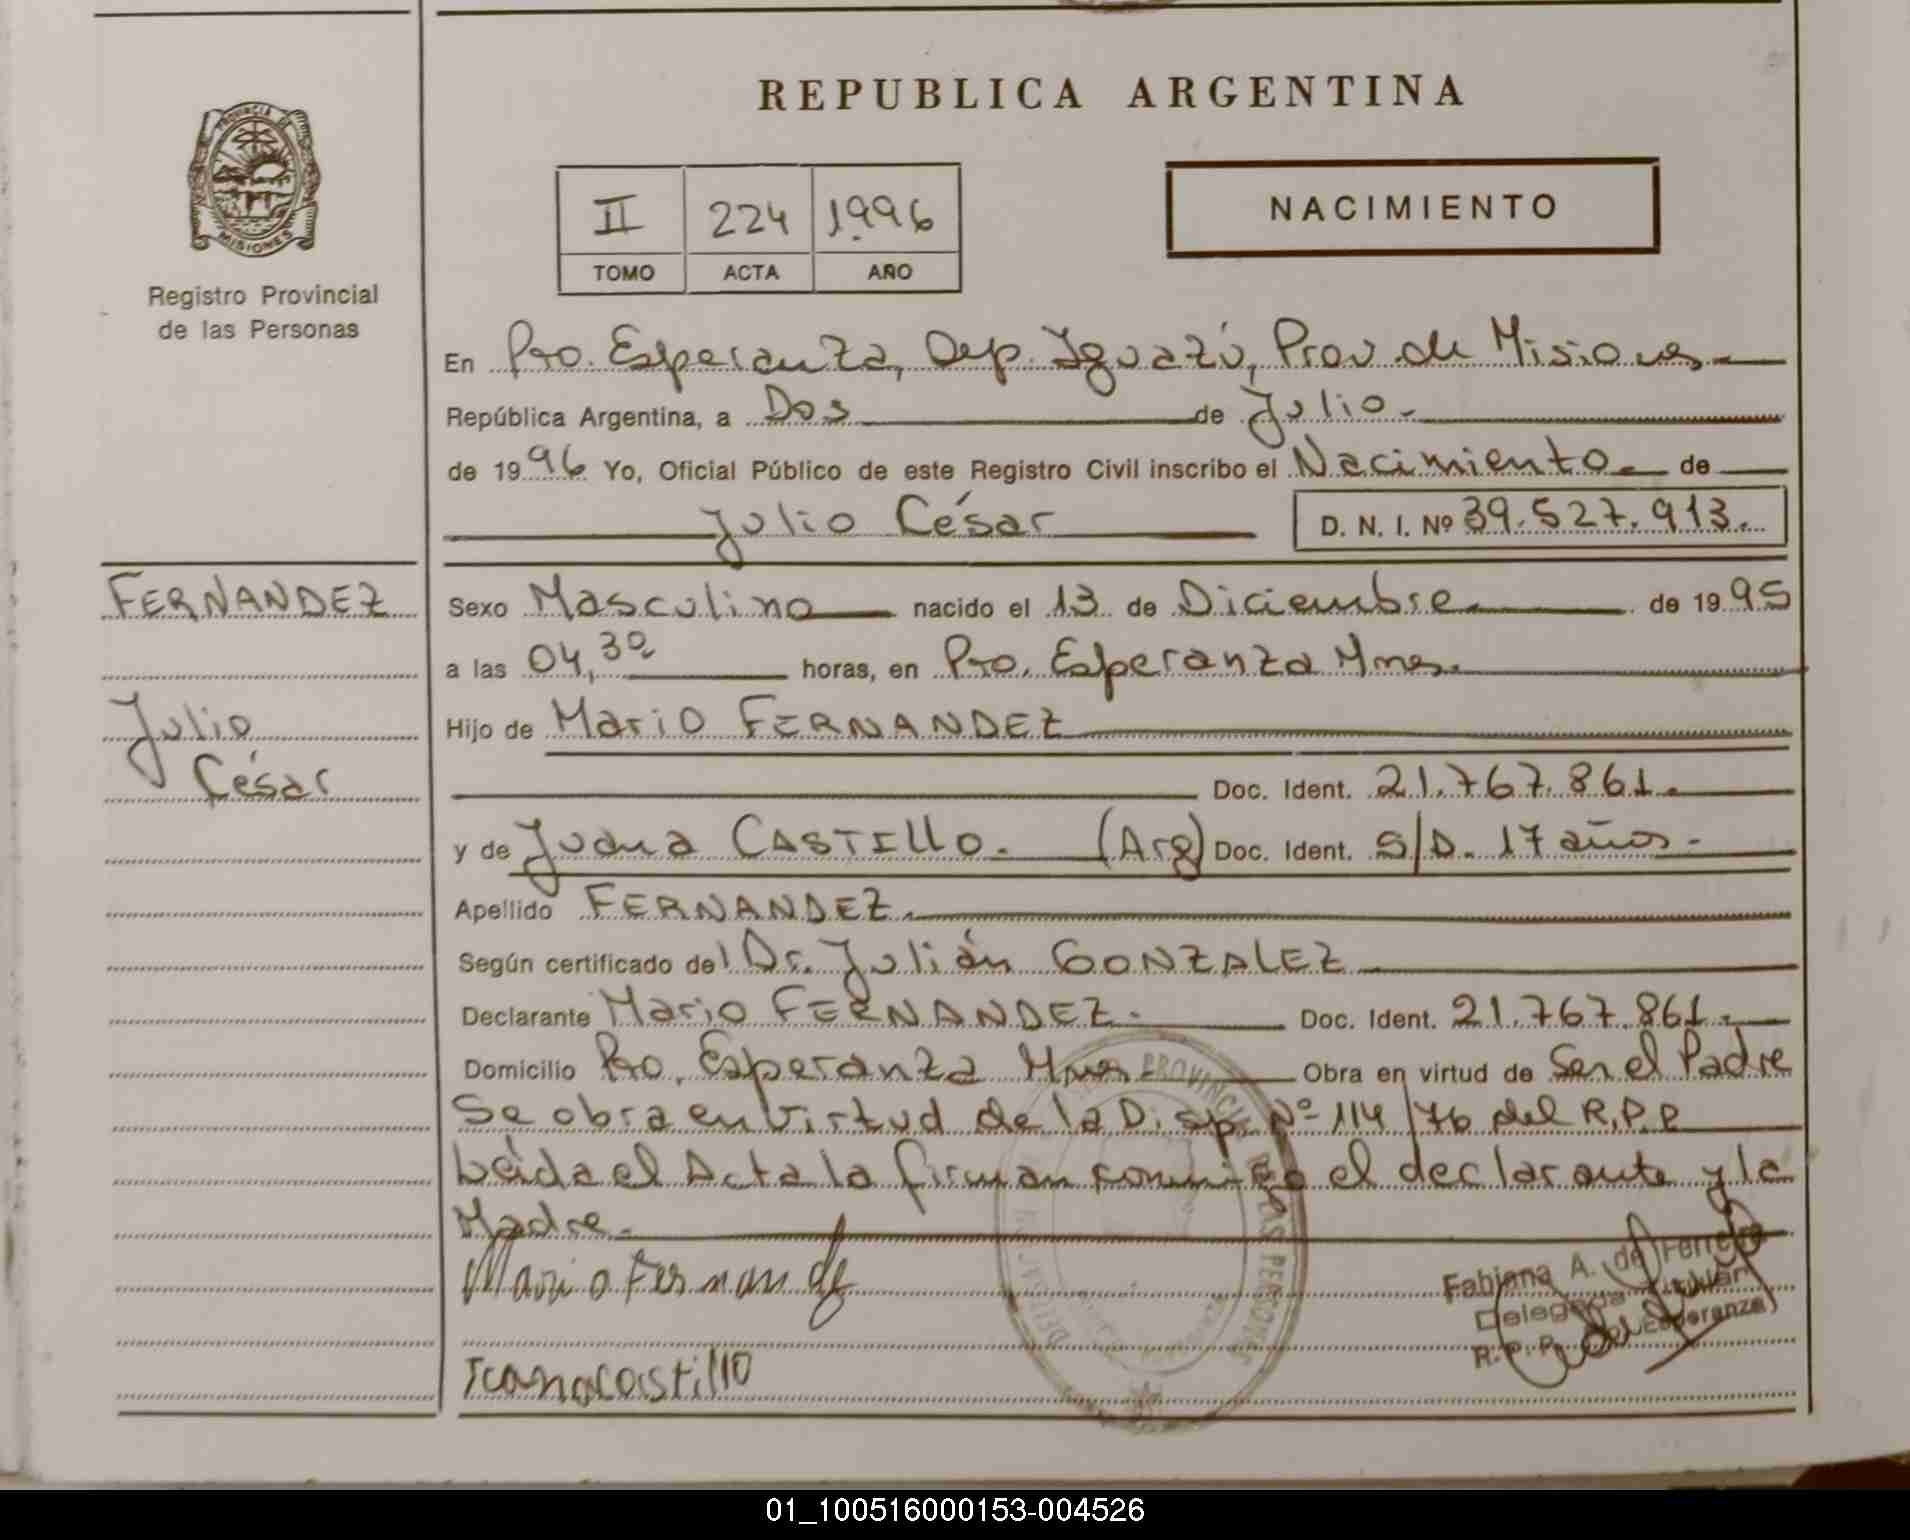 REPUBLICA ARGENTINA
PROVINCIA DE
MISIONES
Registro Provincial
de las Personas
II 224 1996
TOMO ACTA AÑO
NACIMIENTO
En Pto. Esperanza, Dep. Iguazú, Prov. de Misiones
República Argentina, a Dos de Julio.
de 1996 Yo, Oficial Público de este Registro Civil inscribo el Nacimiento de
Julio César D. N. I. Nº 39.527.913.
FERNANDEZ
Julio
César
Sexo Masculino nacido el 13 de Diciembre de 1995
a las 04,30 horas, en Pto. Esperanza Mnes.
Hijo de Mario FERNANDEZ
Doc. Ident. 21.767.861.
y de Juana CASTILLO. (Arg) Doc. Ident. S/D. 17 años.
Apellido FERNANDEZ.
Según certificado del Dr. Julián GONZALEZ
Declarante Mario FERNANDEZ. Doc. Ident. 21.767.861.
Domicilio Pto. Esperanza Mnes. Obra en virtud de Ser el Padre
Se obra en virtud de la Disp. Nº 114/76 del R.P.P
Leída el Acta la firman conmigo el declarante y la
Madre.
Mario Fernandez
Fabiana A. de Ferreyra
Delegada Titular
R.P.P. Esperanza
PROVINCIAL DE LAS PERSONAS
Juana Castillo
01_100516000153-004526